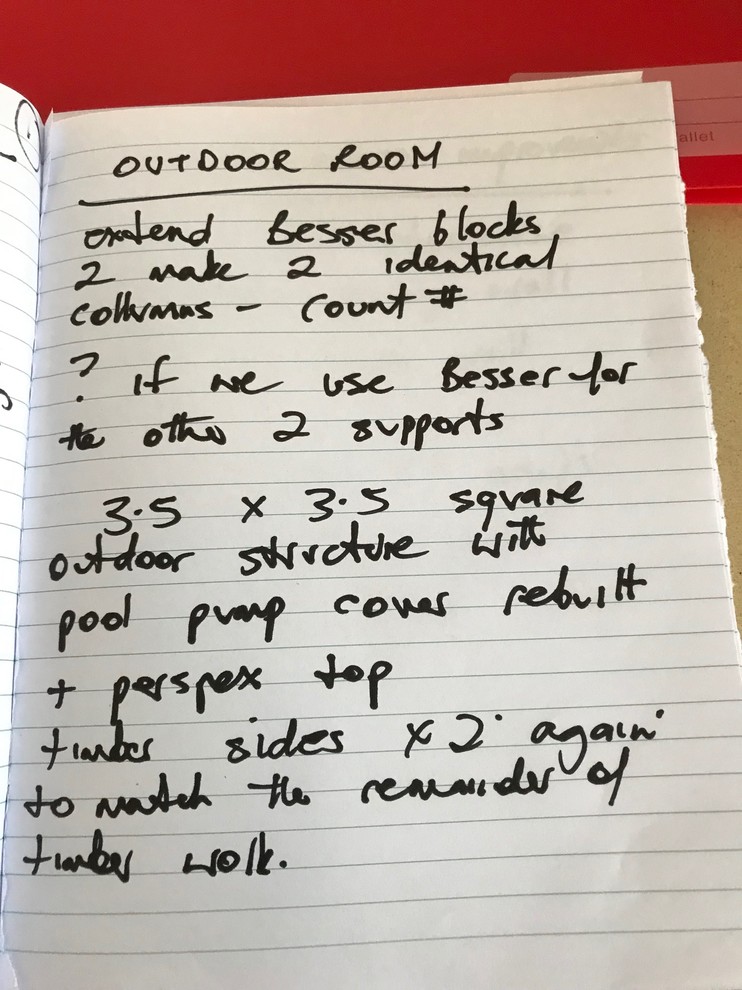 OUTDOOR ROOM
extend Besser blocks
2 make 2 identical
collumns - count #
? if we use Besser for
the other 2 supports
3.5 x 3.5 square
outdoor structure with
pool pump cover rebuilt
+ perspex top
timber sides x 2 again
to match the remainder of
timber work.
allet